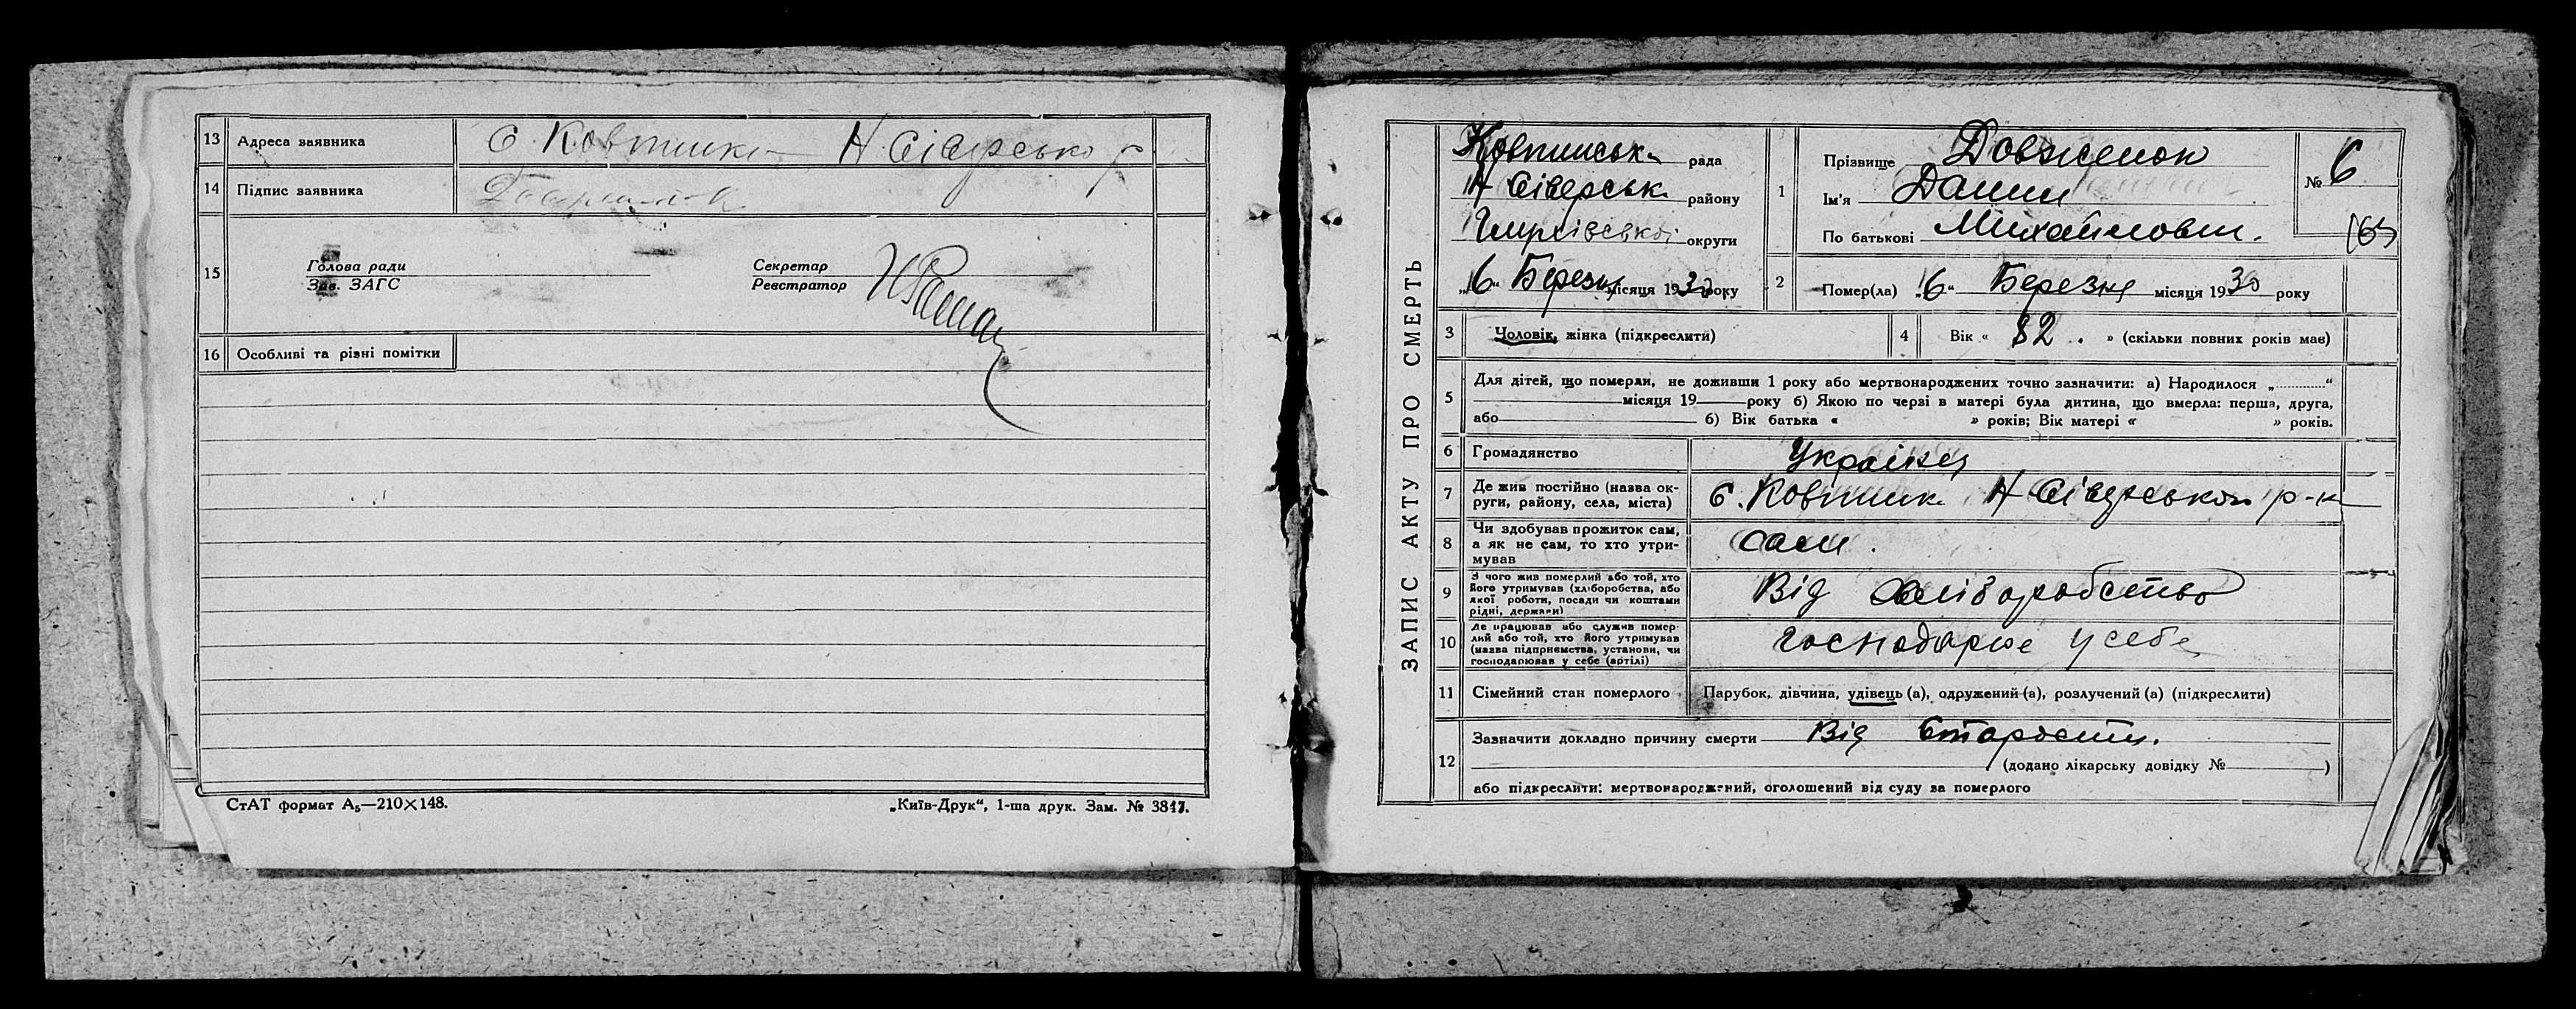 13 Адреса заявника с. Ковпинка Н Сіверсько р
14 Підпис заявника
15 Голова ради Секретар
Зав. ЗАГС Реєстратор
16 Особливі та різні помітки
СтАТ формат А₅—210×148. „Київ-Друк“, 1-ша друк. Зам. № 3817.
ЗАПИС АКТУ ПРО СМЕРТЬ
Ковпинська рада
Н Сіверськ. району
округи
„6“ Березня місяця 1930 року
1 Прізвище Довженок
Ім'я Данил
По батькові Михайлович.
№ 6
2 Помер(ла) „6“ Березня місяця 1930 року
3 Чоловік, жінка (підкреслити)
4 Вік « 82 . » (скільки повних років має)
5 Для дітей, що померли, не доживши 1 року або мертвонароджених точно зазначити: а) Народилося „............“
місяця 19 року б) Якою по черзі в матері була дитина, що вмерла: перша, друга,
або б) Вік батька « » років; Вік матері « » років.
6 Громадянство Українец
7 Де жив постійно (назва ок-
руги, району, села, міста) с. Ковпинк. Н Сіверського р-н
8 Чи здобував прожиток сам,
а як не сам, то хто утри-
мував сам .
9 З чого жив померлий або той, хто
його утримував (хліборобства, або
якої роботи, посади чи коштами
рідні, держави) Від хліборобство
10 Де працював або служив помер-
лий або той, хто його утримував
(назва підприємства, установи, чи
господарював у себе (артілі) господарює у себе
11 Сімейний стан померлого Парубок, дівчина, удівець (а), одружений (а), розлучений (а) (підкреслити)
12 Зазначити докладно причину смерти Від старости.
(додано лікарську довідку № )
або підкреслити: мертвонароджений, оголошений від суду за померлого